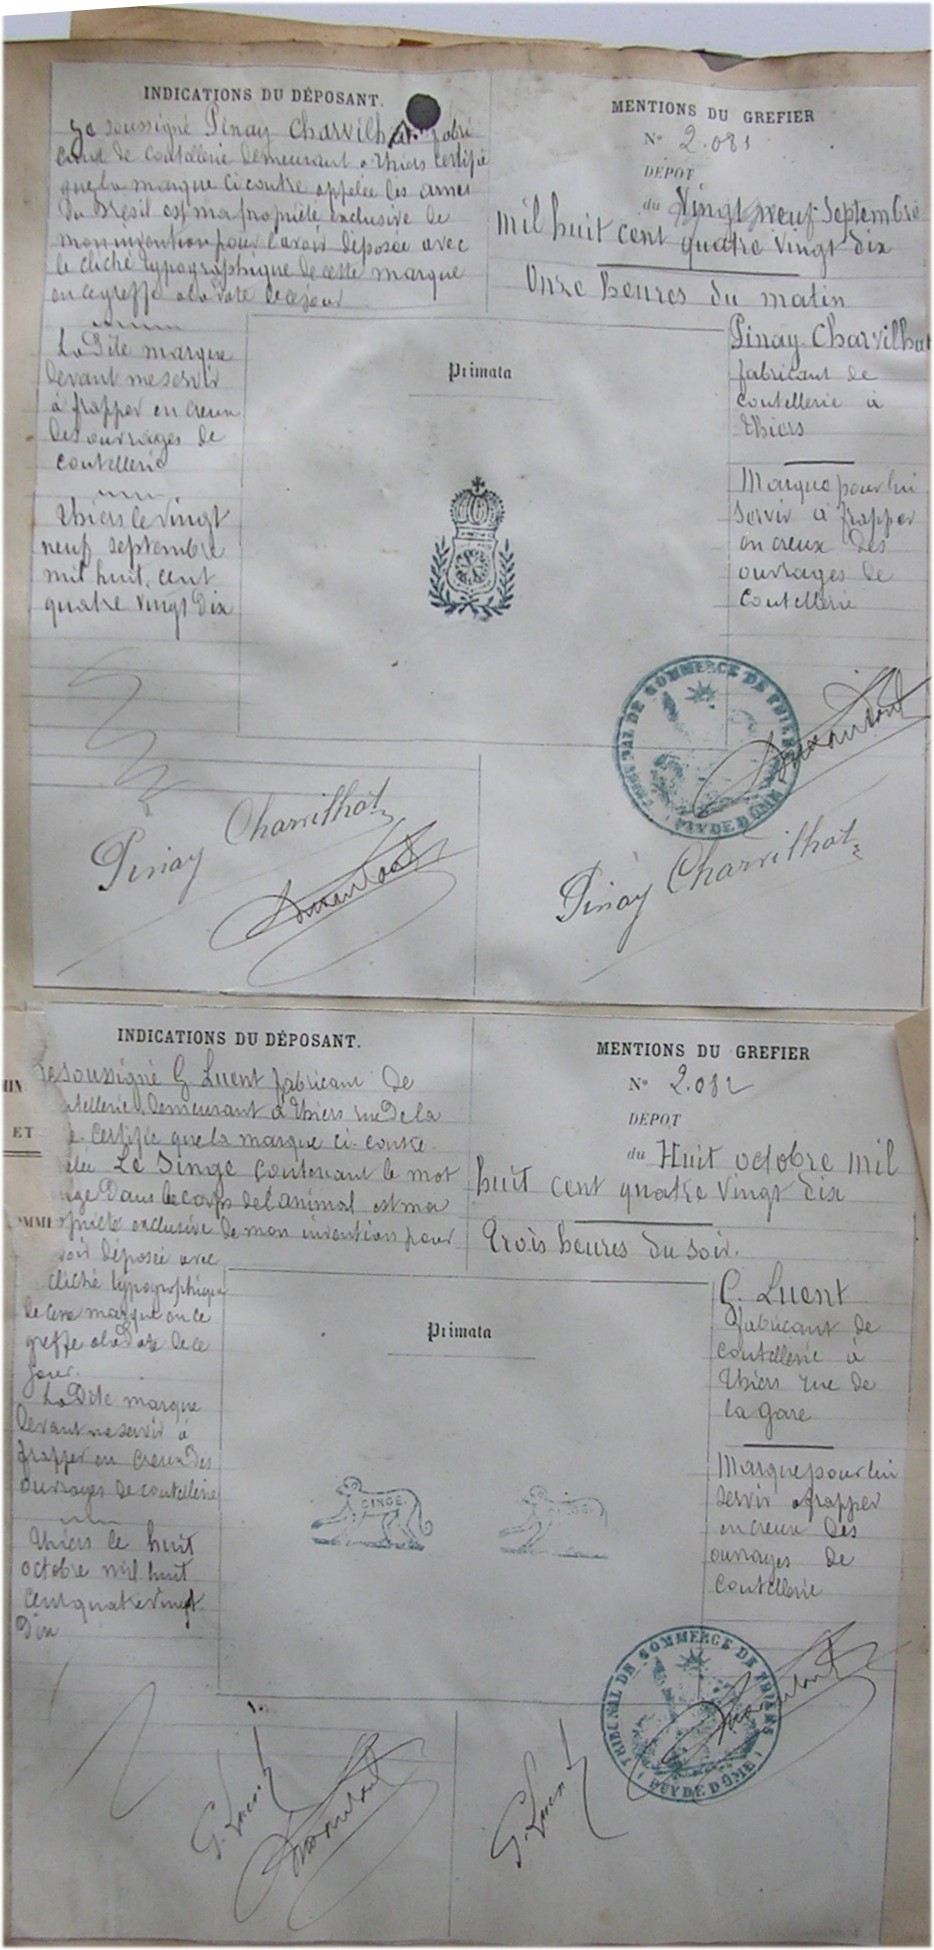 INDICATIONS DU DÉPOSANT.
Je soussigné Pinay Charvilhat fabri
cant de coutellerie demeurant a Thiers certifie
que la marque ci contre appelée les armes
du Brésil est ma propriété exclusive de
mon invention pour l'avoir déposée avec
le cliché typographique de cette marque
en ce greffe a la date de ce jour
La dite marque
devant me servir
à frapper en creux
des ouvrages de
coutellerie
Thiers le vingt
neuf septembre
mil huit cent
quatre vingt dix
MENTIONS DU GREFIER
No 2.081
DÉPOT
du Vingt neuf Septembre
mil huit cent quatre vingt dix
Onze heures du matin
Primata
Pinay Charvilhat
fabricant de
coutellerie à
Thiers
Marque pour lui
servir à frapper
en creux des
ouvrages de
coutellerie
TRIBUNAL DE COMMERCE DE THIERS
PUY DE DOME
Pinay Charvilhat
Pinay Charvilhat
INDICATIONS DU DÉPOSANT.
Je soussigné G. Luent fabricant de
utellerie demeurant a Thiers rue de la
e certifie que la marque ci-contre
élée Le Singe contenant le mot
nge dans le corps de l'animal est ma
opriété exclusive de mon invention pour
voir déposée avec
cliché typographique
de cette marque en ce
greffe a la date de ce
jour.
La Dite marque
devant me servir à
frapper en creux des
ouvrages de coutellerie
Thiers le huit
octobre mil huit
cent quatre vingt
dix
MIN
ET
OMME
MENTIONS DU GREFIER
No 2.082
DÉPOT
du Huit octobre mil
huit cent quatre vingt dix
Trois heures du soir.
Primata
SINGE
G. Luent
fabricant de
coutellerie à
Thiers rue de
la gare
Marque pour lui
servir a frapper
en creux des
ouvrages de
coutellerie
TRIBUNAL DE COMMERCE DE THIERS
PUY DE DOME
G. Luent
G. Luent